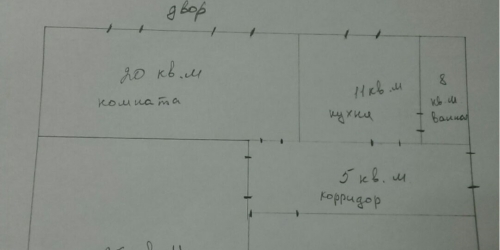 двор
20 кв.м
комната
11 кв м
кухня
8
кв.м
ванная
5 кв.м
корридор